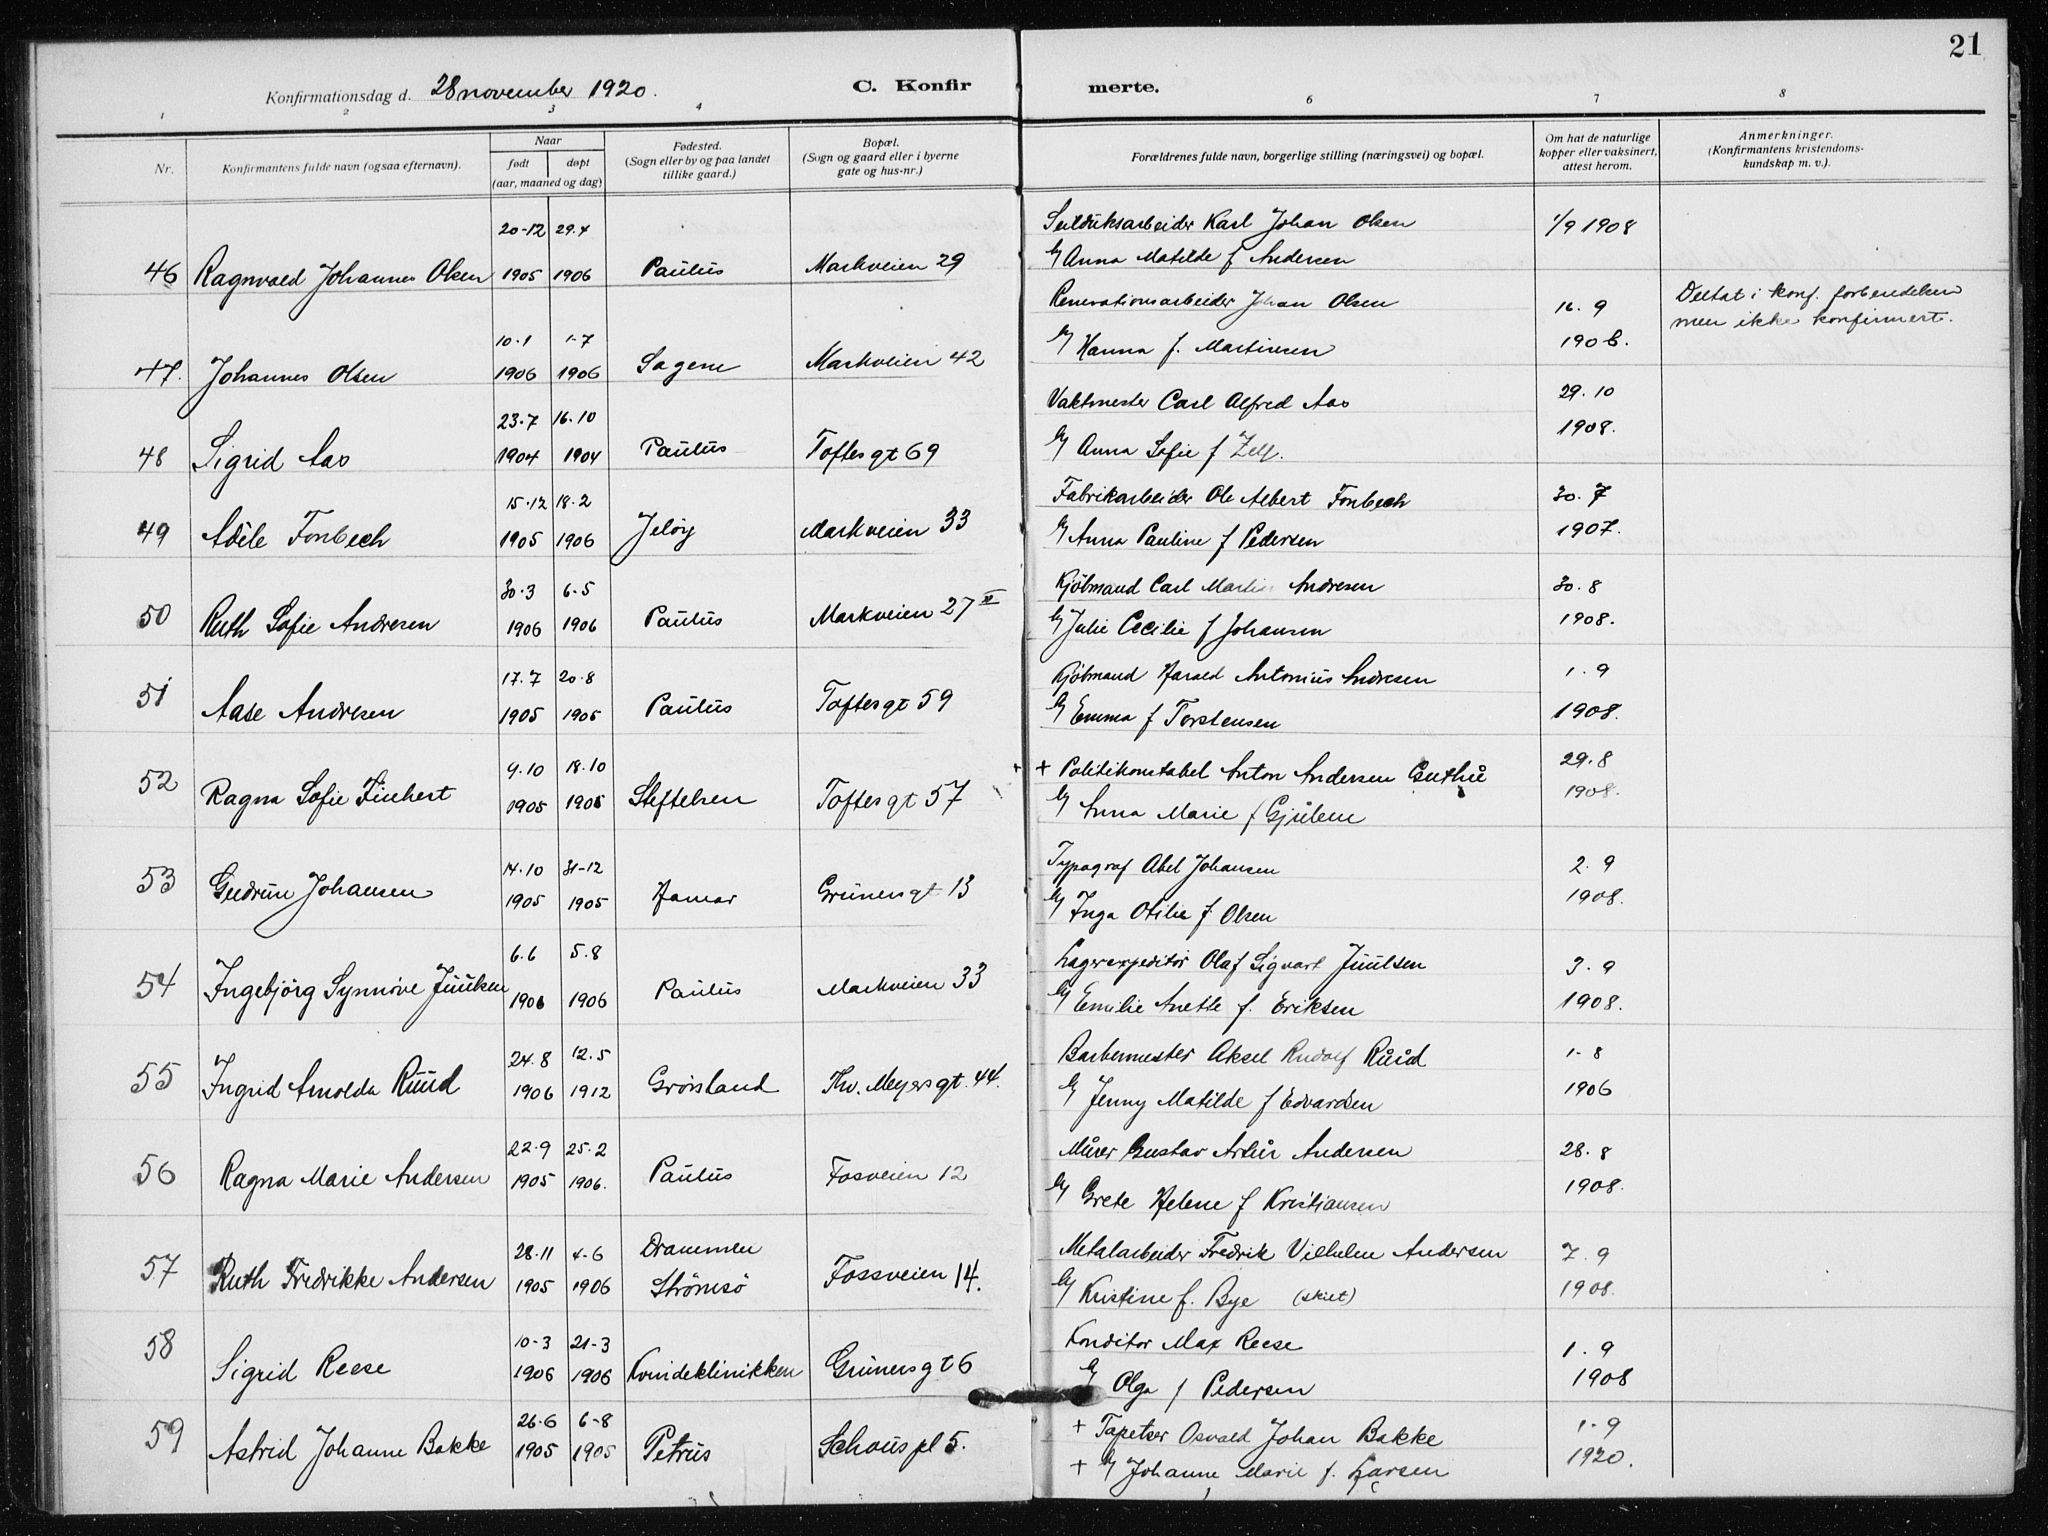 21
Konfirmationsdag d. 28 november 1920. C. Konfirmerte.
1 2 3 4 6 7 8
Nr. Konfirmantens fulde navn (ogsaa efternavn). Naar født døpt (aar, maaned og dag) Fødested. (Sogn eller by og paa landet tillike gaard.) Bopæl. (Sogn og gaard eller i byerne gate og hus-nr.) Forældrenes fulde navn, borgerlige stilling (næringsvei) og bopæl. Om hat de naturlige kopper eller vaksinert, attest herom. Anmerkninger. (Konfirmantens kristendomskundskap m. v.).
20-12 29.4 Seilduksarbeider Karl Johan Olsen 1/9 1908
46 Ragnvald Johannes Olsen 1905 1906 Paulus Markveien 29 Anna Matilde f Andersen
10.1 1-7 Renovationsarbeider Johan Olsen 16. 9 Deltat i konf. forberedelsen
47. Johannes Olsen 1906 1906 Sagene Markveien 42 Hanna f. Martinsen 1908. men ikke konfirmert.
23.7 16.10 Vaktmester Carl Alfred Aas 29. 10
48 Sigrid Aas 1904 1904 Paulus Toftesgt 69 Anna Sofie f 1908.
15.12 18.2 Fabrikarbeider Ole Albert Fonbech 30. 7
49 Adèle Fonbech 1905 1906 Jeløy Markveien 33 Anna Pauline f Pedersen 1907.
30.3 6.5 Kjøbmand Carl Martin Andresen 30. 8
50 Ruth Sofie Andresen 1906 1906 Paulus Markveien 27 II Julie Cecilie f Johansen 1908.
17.7 20.8 Kjøbmand Harald Antonius Andresen 1. 9
51 Aase Andresen 1905 1905 Paulus Toftesgt 59 Emma f Torstensen 1908.
9.10 18.10 + Politikonstabel Anton Andersen 29.8
52 Ragna Sofie 1905 1905 Stiftelsen Toftesgt 57 Anna Marie f 1908.
14.10 31-12 Typograf Abel Johansen 2. 9
53 Gudrun Johansen 1905 1905 Hamar Grünersgt 13 Inga Otilie f. Olsen 1908.
6.6 5.8 Lagerexpeditør Olaf Sigvart Juulsen 3. 9
54 Ingebjörg Synnöve Juulsen 1906 1906 Paulus Markveien 33 Emilie Anette f. Eriksen 1908.
24.8 12.5 Barbermester Aksel Rudolf Ruud 1-8
55 Ingrid Arnolda Ruud 1906 1912 Grønland Thv. Meyersgt. 44. Jenny Matilde f Edvardsen 1906
22.9 25.2 Murer Gustav Artur Andersen 28. 8
56 Ragna Marie Andersen 1905 1906. Paulus Fosveien 12 Grete Helene f Kristiansen 1908.
28.11 4-6 Drammen Metalarbeider Fredrik Vilhelm Andersen 7. 9
57 Ruth Fredrikke Andersen 1905 1906 Strömsö Fossveien 14. Kristine f. Bye (skilt) 1908.
10-3 21-3 Konditor Max Reese 1. 9
58 Sigrid Reese 1906 1906 Kvindeklinikken Grünersgt 6 Olga f Pedersen 1908
26.6 6-8 + Tapetser Osvald Johan Bakke 1-9
59 Astrid Johanne Bakke 1905 1905 Petrus Schouspl 5. + Johanne Marie f. Larsen 1920.